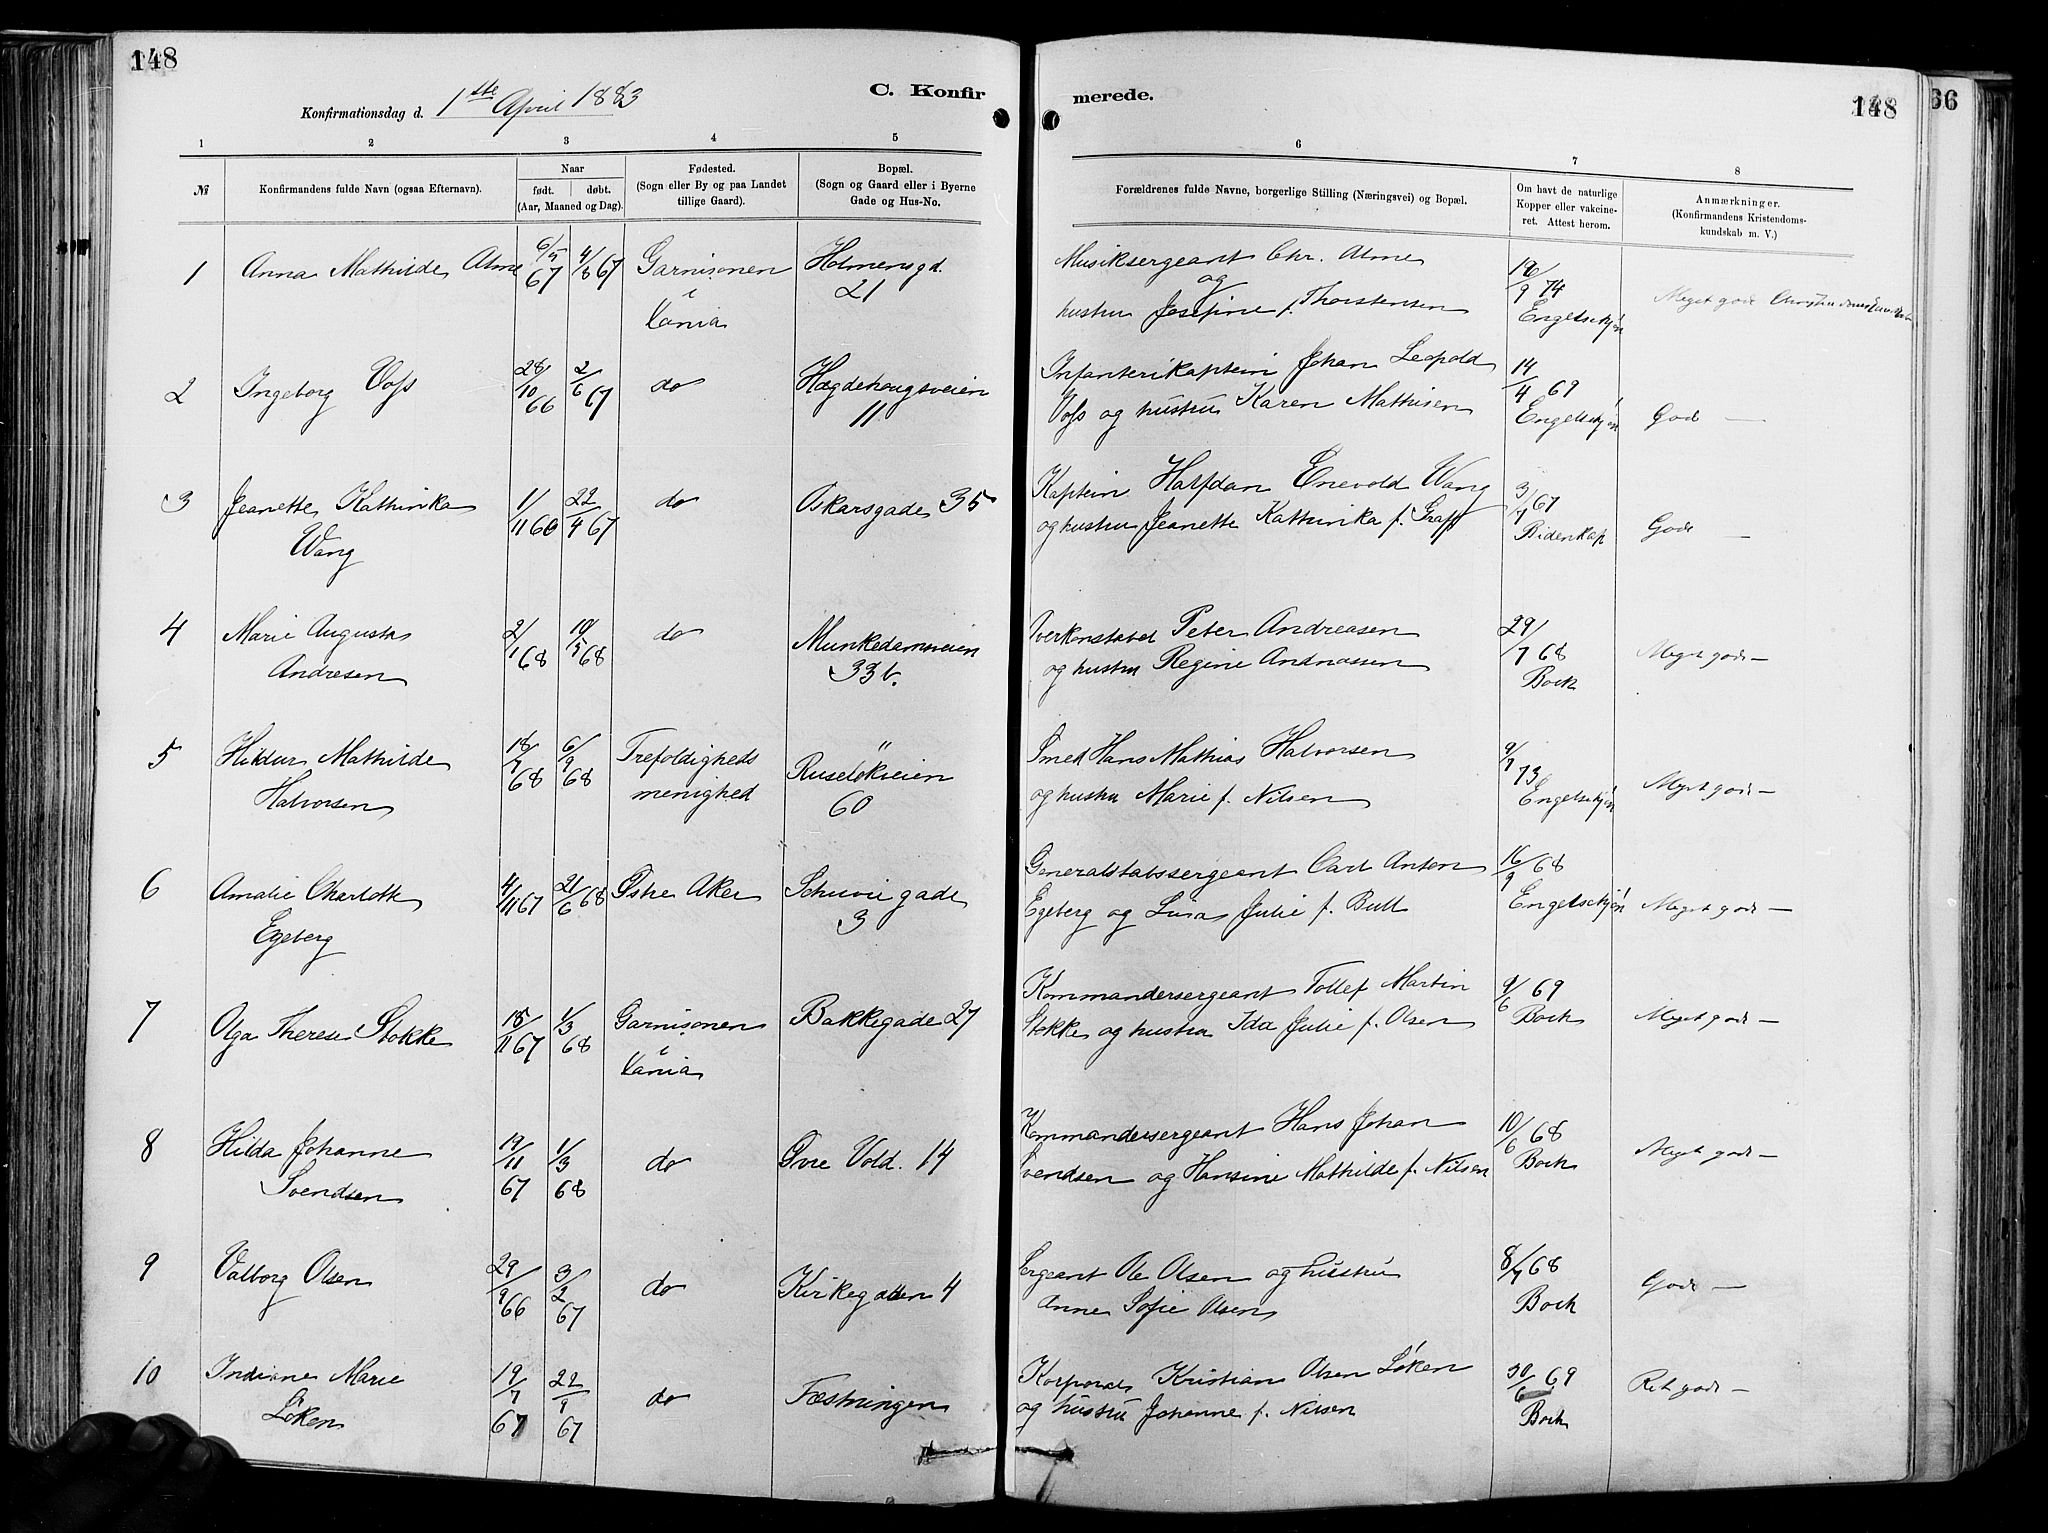 148
Konfirmationsdag d. 1ste April 1883
C. Konfir
merede.
148
66
1 2 3 4 5 6 7 8
№
Konfirmandens fulde Navn (ogsaa Efternavn).
Naar
født. døbt.
(Aar, Maaned og Dag).
Fødested.
(Sogn eller By og paa Landet
tillige Gaard).
Bopæl.
(Sogn og Gaard eller i Byerne
Gade og Hus-No.
Forældrenes fulde Navne, borgerlige Stilling (Næringsvei) og Bopæl.
Om havt de naturlige
Kopper eller vakcine-
ret. Attest herom.
Anmærkninger.
(Konfirmandens Kristendoms-
kundskab m. V.)
1 Anna Mathilde Alme 6/5 67 4/8 67 Garnisonen i Xania Holmensgd. 21
Musiksergeant Chr. Alme
og
hustru Josefine f. Thorstensen
19/9 74 Engelschjøn
Meget god
2 Ingeborg Voss 28/10 66 2/6 67 do Hægdehougsveien 11
Infanterikaptein Johan Leopold
Voss og hustru Karen Mathisen
14/4 69 Engelschjøn
God —
3 Jeanette Kathinka
Wang
1/11 66 22/4 67 do Oskarsgade 35
Kaptein Halfdan Enevold Wang
og hustru Jeanette Kathinka f. Graff
3/7 67 Bidenkap
God —
4 Marie Augusta
Andresen
2/1 68 10/5 68 do Munkedamsveien 33 b.
Peter Andreasen
og hustru Regine Andreassen
29/7 68 Boek
Meget god —
5 Hildur Mathilde
Halvorsen
18/7 68 6/9 68 Trefoldigheds
menighed
Ruseløkveien
60
Smed Hans Mathias Halvorsen
og hustru Marie f. Nilsen
9/7 73 Engelschjøn
Meget god —
6 Amalie Charlotte
Egeberg
4/11 67 21/6 68 Østre Aker Schwei gade
3
Generalstabssergeant Carl Anton
Egeberg og Lina Julie f. Bull
16/9 68 Engelschjøn
Meget god —
7 Olga Therese Stokke 15/11 67 1/3 68 Garnisonen i Xania Bakkegade 27
Kommandersergeant Tollef Martin
Stokke og hustru Ida Julie f. Olsen
9/6 69 Boek
Meget god —
8 Hilda Johanne
Svendsen
19/11 67 1/3 68 do Øvre Vold. 14
Kommandersergeant Hans Johan
Svendsen og Hansine Mathilde f. Nilsen
10/6 68 Boek
Meget god —
9 Valborg Olsen 29/9 66 3/2 67 do Kirkegaden 4
Sergeant Ole Olsen og hustru
Anne Sofie Olsen
8/7 68 Boek
God —
10 Indiane Marie
Løken
19/7 67 22/9 67 do Fæstningen
Korporal Kristian Olsen Løken
og hustru Johanne f. Nilsen
30/6 69 Boek
Ret god —